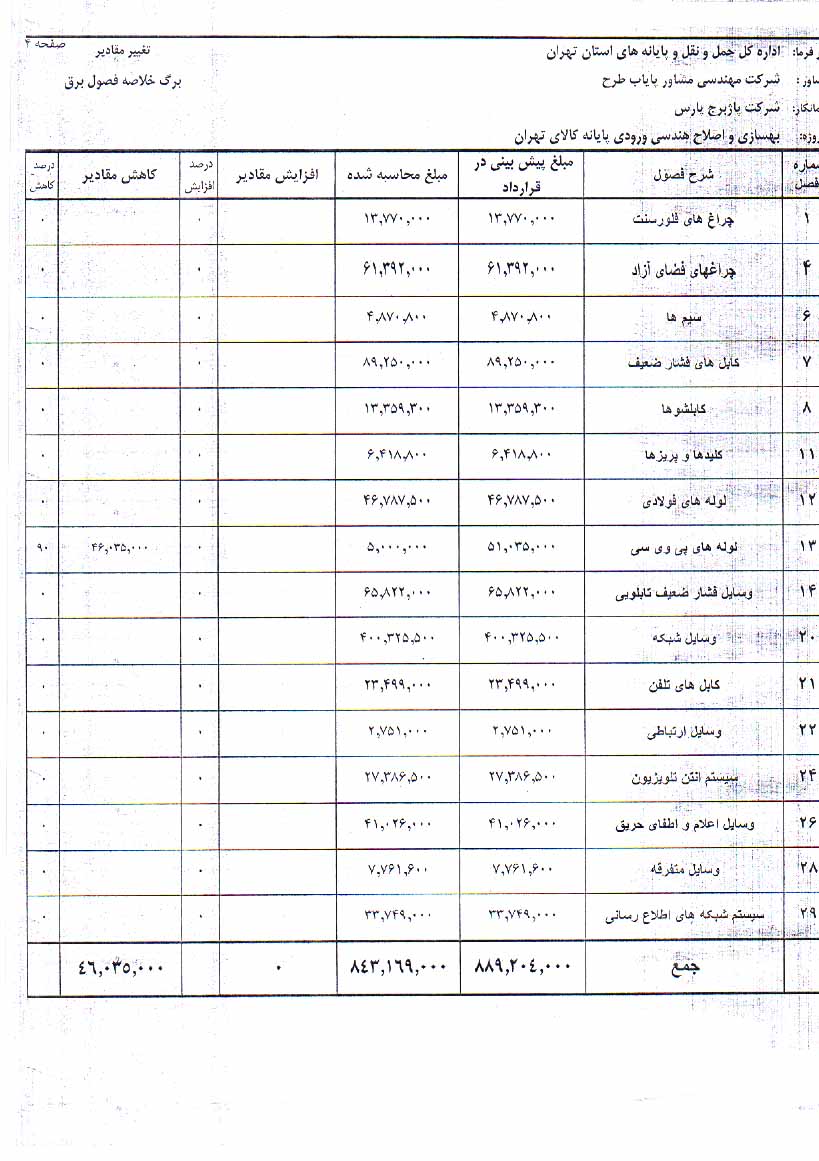 صفحه ۴
تغییر مقادیر
برگ خلاصه فصول برق
فرما: اداره کل حمل و نقل و پایانه های استان تهران
شاور: شرکت مهندسی مشاور پایاب طرح
مانکار: شرکت پاژبرج پارس
روژه: بهسازی و اصلاح هندسی ورودی پایانه کالای تهران
شماره فصل شرح فصول مبلغ پیش بینی در قرارداد مبلغ محاسبه شده افزایش مقادیر درصد افزایش کاهش مقادیر درصد کاهش
۱ چراغ های فلورسنت ۱۳,۷۷۰,۰۰۰ ۱۳,۷۷۰,۰۰۰ ۰ ۰
۴ چراغهای فضای آزاد ۶۱,۳۹۲,۰۰۰ ۶۱,۳۹۲,۰۰۰ ۰ ۰
۶ سیم ها ۴,۸۷۰,۸۰۰ ۴,۸۷۰,۸۰۰ ۰ ۰
۷ کابل های فشار ضعیف ۸۹,۲۵۰,۰۰۰ ۸۹,۲۵۰,۰۰۰ ۰ ۰
۸ کابلشوها ۱۳,۳۵۹,۳۰۰ ۱۳,۳۵۹,۳۰۰ ۰ ۰
۱۱ کلیدها و پریزها ۶,۴۱۸,۸۰۰ ۶,۴۱۸,۸۰۰ ۰ ۰
۱۲ لوله های فولادی ۴۶,۷۸۷,۵۰۰ ۴۶,۷۸۷,۵۰۰ ۰ ۰
۱۳ لوله های پی وی سی ۵۱,۰۳۵,۰۰۰ ۵,۰۰۰,۰۰۰ ۰ ۴۶,۰۳۵,۰۰۰ ۹۰
۱۴ وسایل فشار ضعیف تابلویی ۶۵,۸۲۲,۰۰۰ ۶۵,۸۲۲,۰۰۰ ۰ ۰
۲۰ وسایل شبکه ۴۰۰,۳۲۵,۵۰۰ ۴۰۰,۳۲۵,۵۰۰ ۰ ۰
۲۱ کابل های تلفن ۲۳,۴۹۹,۰۰۰ ۲۳,۴۹۹,۰۰۰ ۰ ۰
۲۲ وسایل ارتباطی ۲,۷۵۱,۰۰۰ ۲,۷۵۱,۰۰۰ ۰ ۰
۲۴ سیستم انتن تلویزیون ۲۷,۳۸۶,۵۰۰ ۲۷,۳۸۶,۵۰۰ ۰ ۰
۲۶ وسایل اعلام و اطفای حریق ۴۱,۰۲۶,۰۰۰ ۴۱,۰۲۶,۰۰۰ ۰ ۰
۲۸ وسایل متفرقه ۷,۷۶۱,۶۰۰ ۷,۷۶۱,۶۰۰ ۰ ۰
۲۹ سیستم شبکه های اطلاع رسانی ۳۳,۷۴۹,۰۰۰ ۳۳,۷۴۹,۰۰۰ ۰ ۰
جمع ۸۸۹,۲۰٤,۰۰۰ ۸٤۳,۱٦۹,۰۰۰ ۰ ٤٦,۰۳۵,۰۰۰